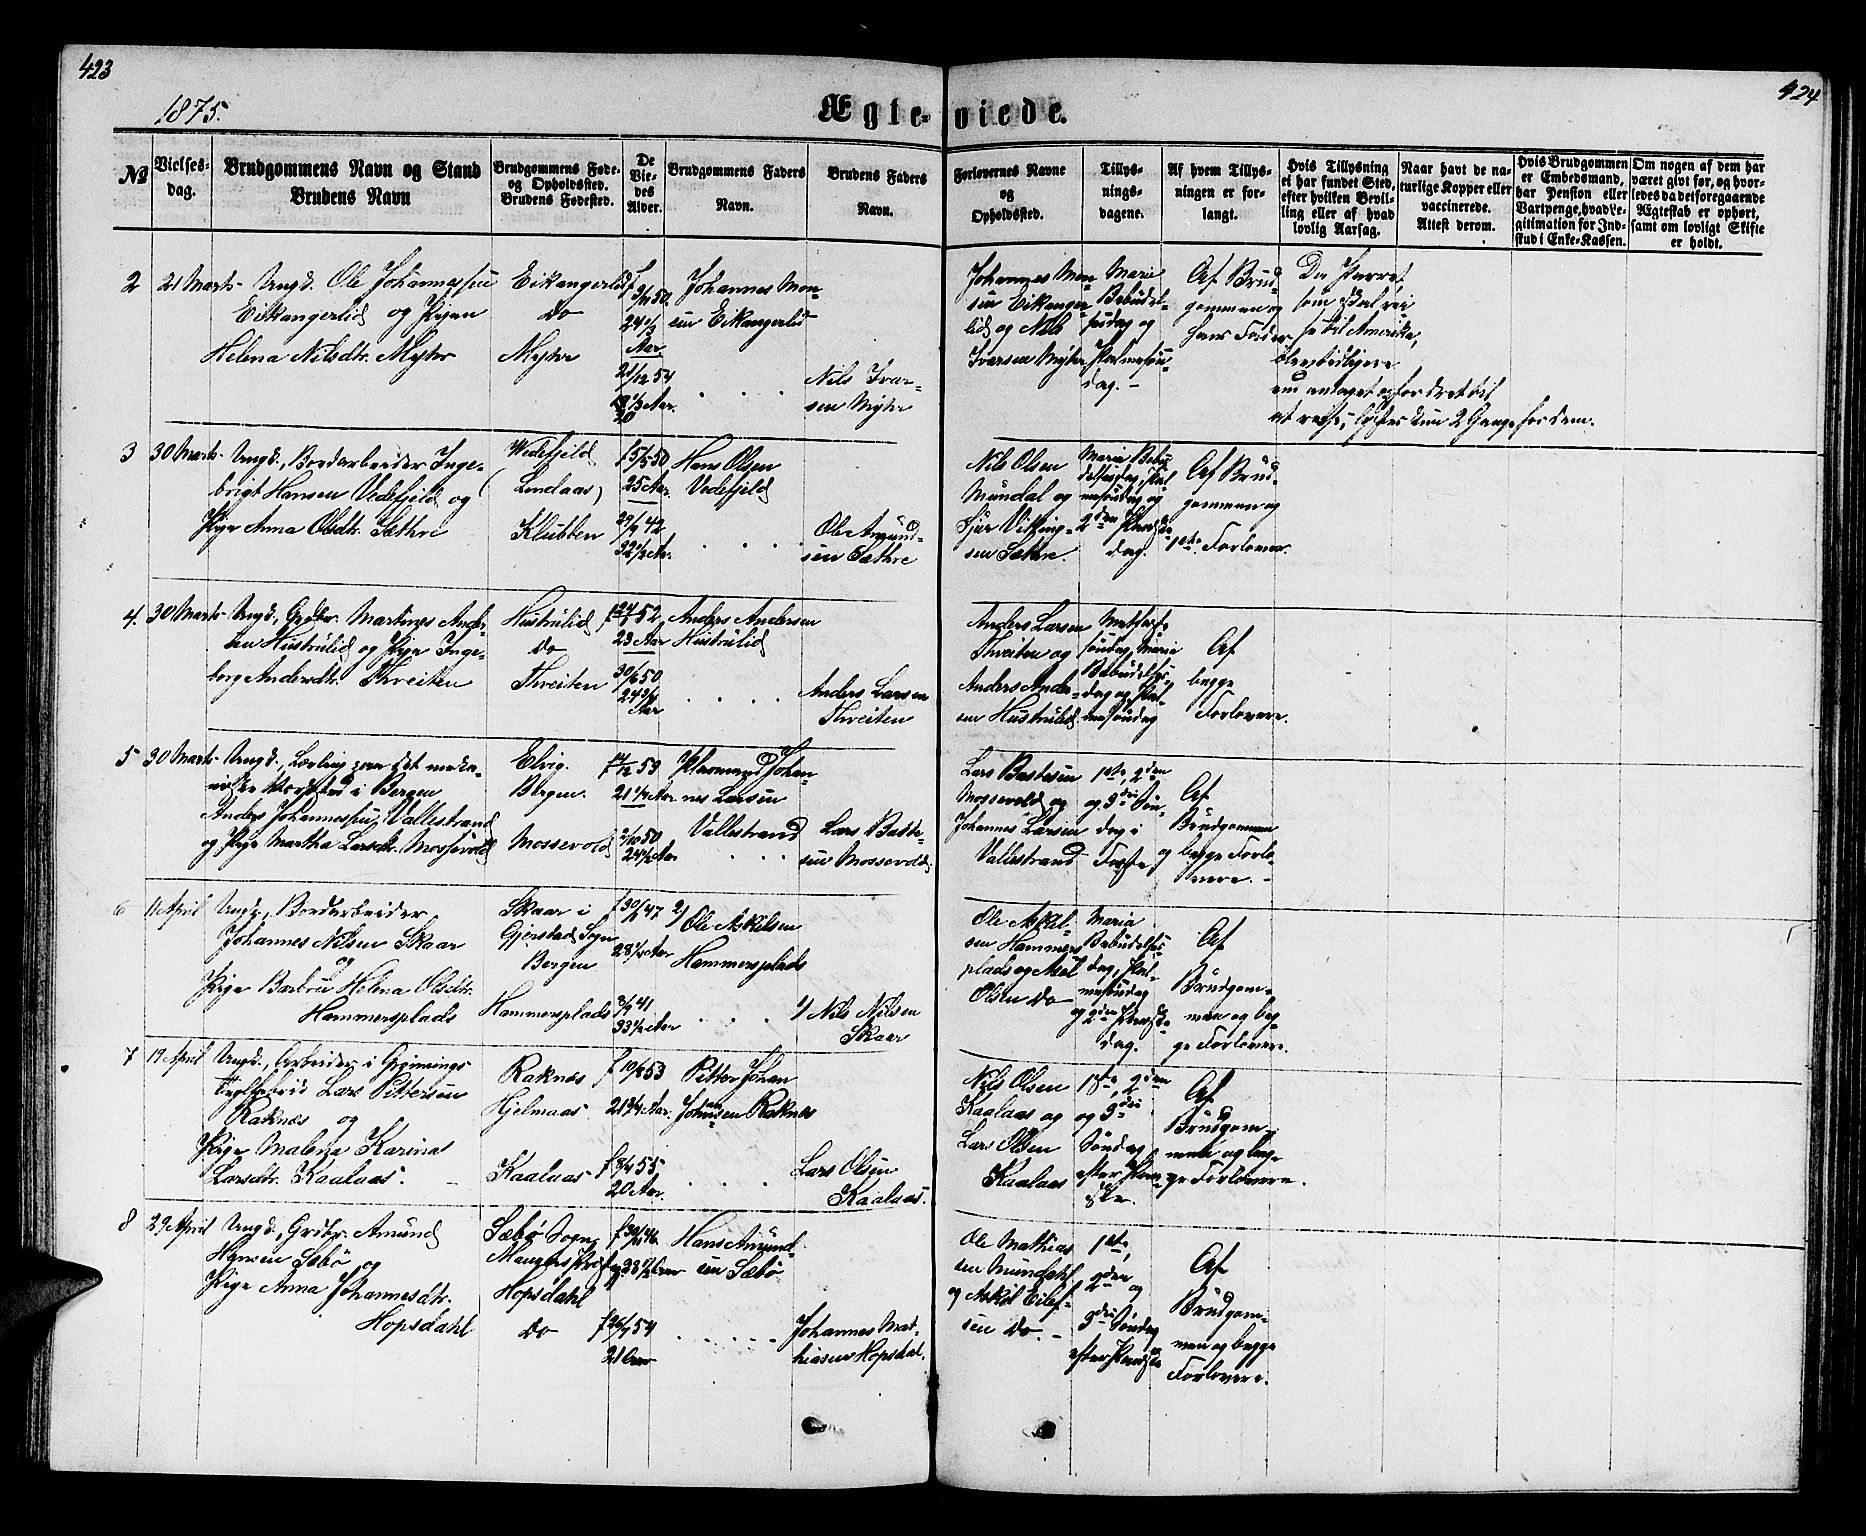 423
424
1875.
Ægte-viede.
№
Vielses-
dag.
Brudgommens Navn og Stand
Brudens Navn
Brudgommens Føde-
og Opholdssted.
Brudens Fødested.
De
Vie-
des
Alder.
Brudgommens Faders
Navn.
Brudens Faders
Navn.
Forlovernes Navne
og
Opholdssted.
Tillys-
nings-
dagene.
Af hvem Tillys-
ningen er for-
langt.
Hvis Tillysning
ei har fundet Sted,
efter hvilken Bevil-
ling eller af hvad
lovlig Aarsag.
Naar havt de na-
turlige Kopper eller
vaccinerede.
Attest derom.
Hvis Brudgommen
er Embedsmand,
har Pension eller
Vartpenge, hvad Le-
gitimation for Ind-
skud i Enke-Kassen.
Om nogen af dem har
været givt før, og hvor-
ledes da det foregaaende
Ægteskab er ophørt,
samt om lovligt Skifte
er holdt.
2
21 Marts
Ungk. Ole Johannessen
Eikangerlid og Pigen
Helena Nilsdtr. Myhr
Eikangerlid
Do
Myhre
9/11 50.
24 1/3
Aar
21/12 54
Johannes Mon-
sen Eikangerlid
Nils Ivar-
sen Myhre
Johannes Mon-
sen Eikanger-
lid og Nils
Iversen Myhre
Marie
Bebudel-
sesdag og
Palmesøn-
dag. -
Af Brud-
gommen og
hans Fader
Da Parret,
som skal rei
se til Amerika,
blev tidligere
end antaget opfordret til
at reise, lystes kun 2 Gange for dem.
3
30 Marts
Ungk., Bordarbeider Inge-
brigt Hansen Vedefjeld og
Pige Anna Olsdtr. Sæthre
Wedefjeld
(Lindaas)
Klubben
f 5/3 50
25 Aar
29/9 42
32 1/2 Aar.
Hans Olsen
Vedefjeld
Ole Amund-
sen Sæthre
Nils Olsen
Mundal og
Sjur Viking-
sen Sæthre.
Maria Bebu
delsesdag, Pal
mesøndag og
2den Paaske
dag.
Af Brud-
gommen og
1ste Forlover.
4.
30 Marts
Ungk., Grdbr. Martines Ander-
sen Hustrulid og Pige Inge-
borg Andersdtr. Threiten
Hustrulid
Do
Threiten
52
23 Aar
30/6 50
24 3/4
Aar
Anders Andersen
Hustrulid
Anders Larsen
Threiten
Anders Larsen
Threiten og
Anders Ander-
sen Hustrulid
søndag, Maria
Bebudelses-
dag og Pal-
mesøndag
Af
begge
Forlovere.
5
30 Marts
Ungk., Lærling paa det meka-
niske Værksted i Bergen
Anders Johannessen Vallestrand
og Pige Martha Larsdtr. Mossevold
Elvig.
Bergen.
Mossevold
53
21 1/4 Aar
2/10 50
24 1/2 Aar
Pladsmand Johan-
nes Larsen
Vallestrand
Lars Baste-
sen Mossevold.
Lars Bastesen
Mossevold og
Johannes Larsen
Vallestrand
1ste, 2den
og 3die Søn-
dag i
Faste
Af
Brudgommen
og begge Forlo-
vere. -
6
11 April
Ungk., Bordarbeider
Johannes Nilsen Skaar
og
Pige Barbru Helena Olsdtr.
Hammersplads
Skaar i
Gjerstad Sogn
Bergen
Hammersplads
47
28 1/4 Aar
41
33 1/2 Aar
2) Ole Askelsen
Hammersplads
1) Nils Nilsen
Skaar
Ole Askel-
sen Hammers
plads og Askel
Olsen Do
Maria
Bebudelses
dag, Pal-
mesøndag
og 2den Paaske
dag.
Af
Brudgom-
men og beg-
ge Forlovere.
7
19 April
Ungk., Arbeider i Grimnings
Lars Pettersen
Raknes og
Pige Malena Karina
Larsdtr. Kaalaas.
Raknes
Hjelmaas
Kaalaas
f 10/8 53
21 3/4 Aar.
f 8/4 55
20 Aar.
Petter Johan
Johansen Raknes
Lars Olsen
Kaalaas.
Nils Olsen
Kaalaas og
Lars Olsen
Kaalaas
1ste, 2den
og 3die
Søndag
efter Paa-
ske.
Af
Brudgom-
men og beg-
ge Forlovere.
8
29 April
Ungk., Grdbr. Amund
Hansen Sæbø og
Pige Anna Johannesdtr.
Hopsdahl
Sæbø Sogn
Mangers Præstegj
Hopsdahl
Do
54
21 Aar
Hans Amund-
sen Sæbø
Johannes Mat-
hiasen Hopsdal.
Ole Mathias
sen Mundahl
og Askel Eilef-
sen Do. -
1ste,
2den og
3die Søndag
efter Paaske
Af
Brudgom-
men og begge
Forlovere.